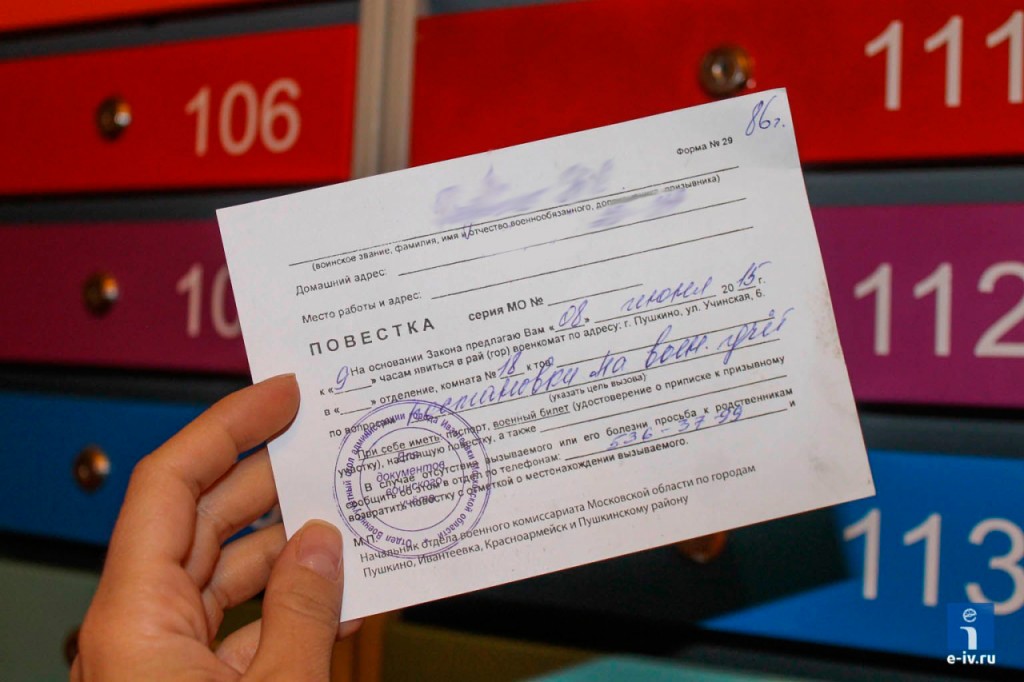 106
111
86г.
Форма № 29
(воинское звание, фамилия, имя и отчество военнообязанного, призывника)
Домашний адрес:
Место работы и адрес:
ПОВЕСТКА серия МО №
На основании Закона предлагаю Вам «08» июня 2015 г.
к «9» часам явиться в рай (гор) военкомат по адресу: г. Пушкино, ул. Учинская, 6.
в «___» отделение, комната № 18 к тов
по вопросу постановки на воен. учёт
(указать цель вызова)
При себе иметь паспорт, военный билет (удостоверение о приписке к призывному
участку), настоящую повестку, а также
В случае отсутствия вызываемого или его болезни просьба к родственникам и
сообщить об этом в отдел по телефонам: 536-37-99
возвратить повестку с отметкой о местонахождении вызываемого.
М.П.
Начальник отдела военного комиссариата Московской области по городам
Пушкино, Ивантеевка, Красноармейск и Пушкинскому району
Для
документов
воинского
учёта
10
112
113
e-iv.ru